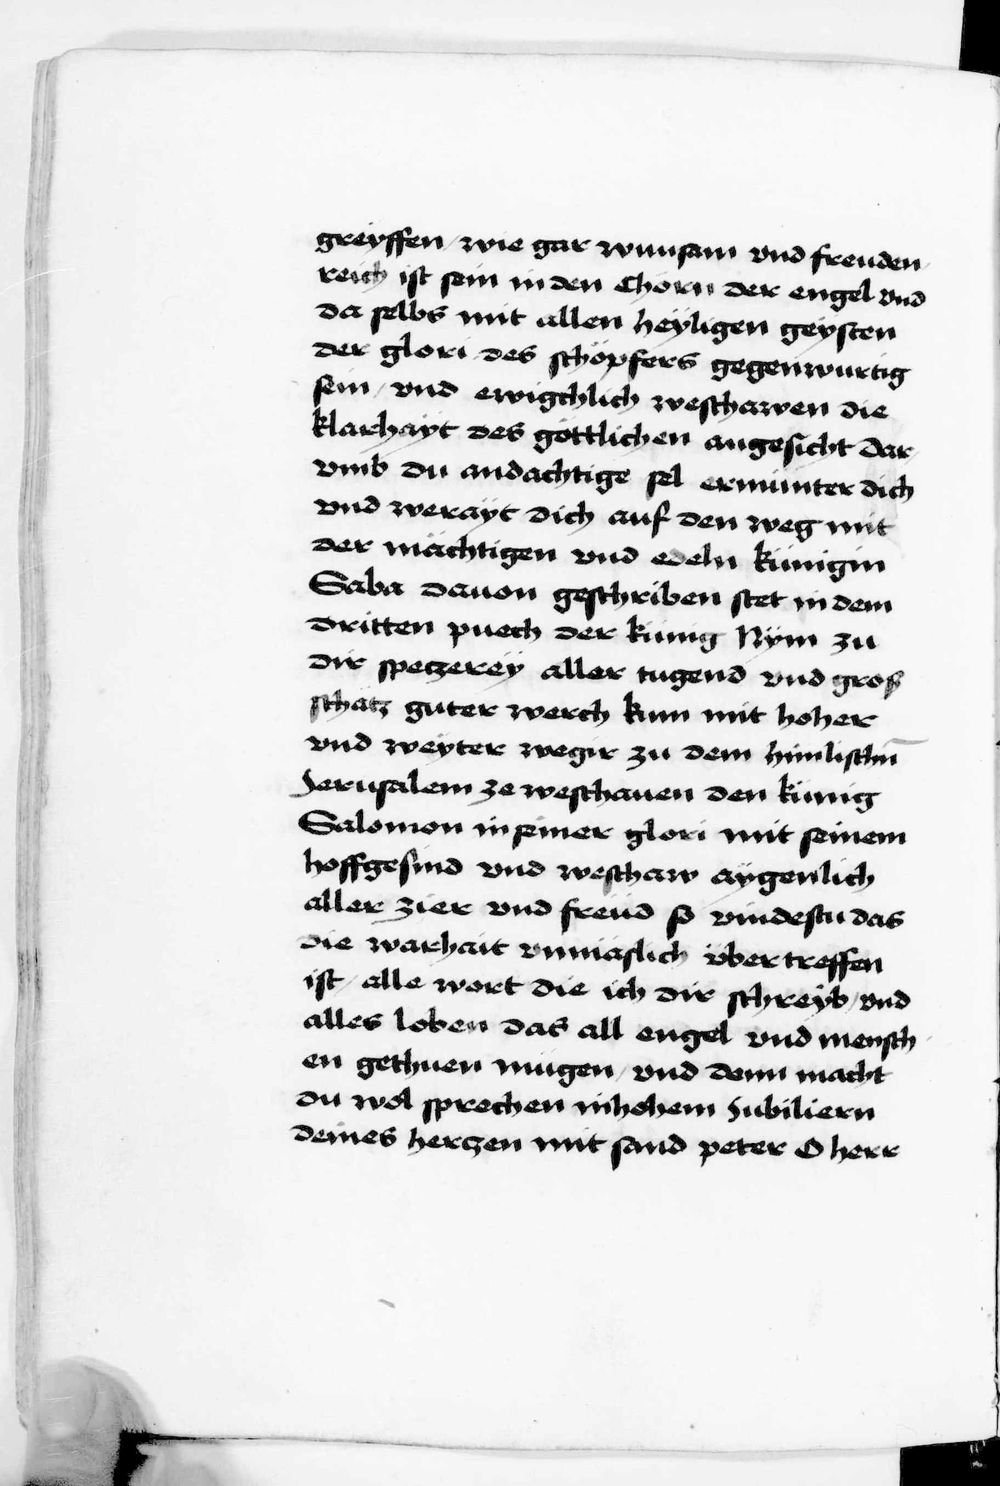 greÿffen / wie gar wunsam vnd freuden
reich ist sein in den Chörn der engel vnd
da selbs mit allen heÿligen geÿsten
der glori des schöpfers gegenwurtig
sein / vnd ewigchlich weschawen die
klarhaÿt des göttlichen angesicht Dar
vmb du andachtige sel ermunter dich
vnd weraÿt dich auf den weg mit
der mächtigen vnd edeln künigin
Saba dauon geschriben stet in dem
dritten puech der künig Nÿm zu
dir speczereÿ aller tugend vnd groß
schätz guter werch kum mit hoher
vnd weÿter wegir zu dem himlischn̄
Jerusalem ze weschauen den künig
Salomon in seiner glori mit seinem
hoffgesind vnd weschaw aÿgenlich
aller zier vnd freüd so vindestu das
die warhait vnmäslich vbertreffen
ist / alle wort die ich dir schreÿb / vnd
alles loben das all engel vnd mensch
en gethuen mügen / vnd denn macht
du wol sprechen in hohem Jubiliern
deines herczen mit sand peter O herr